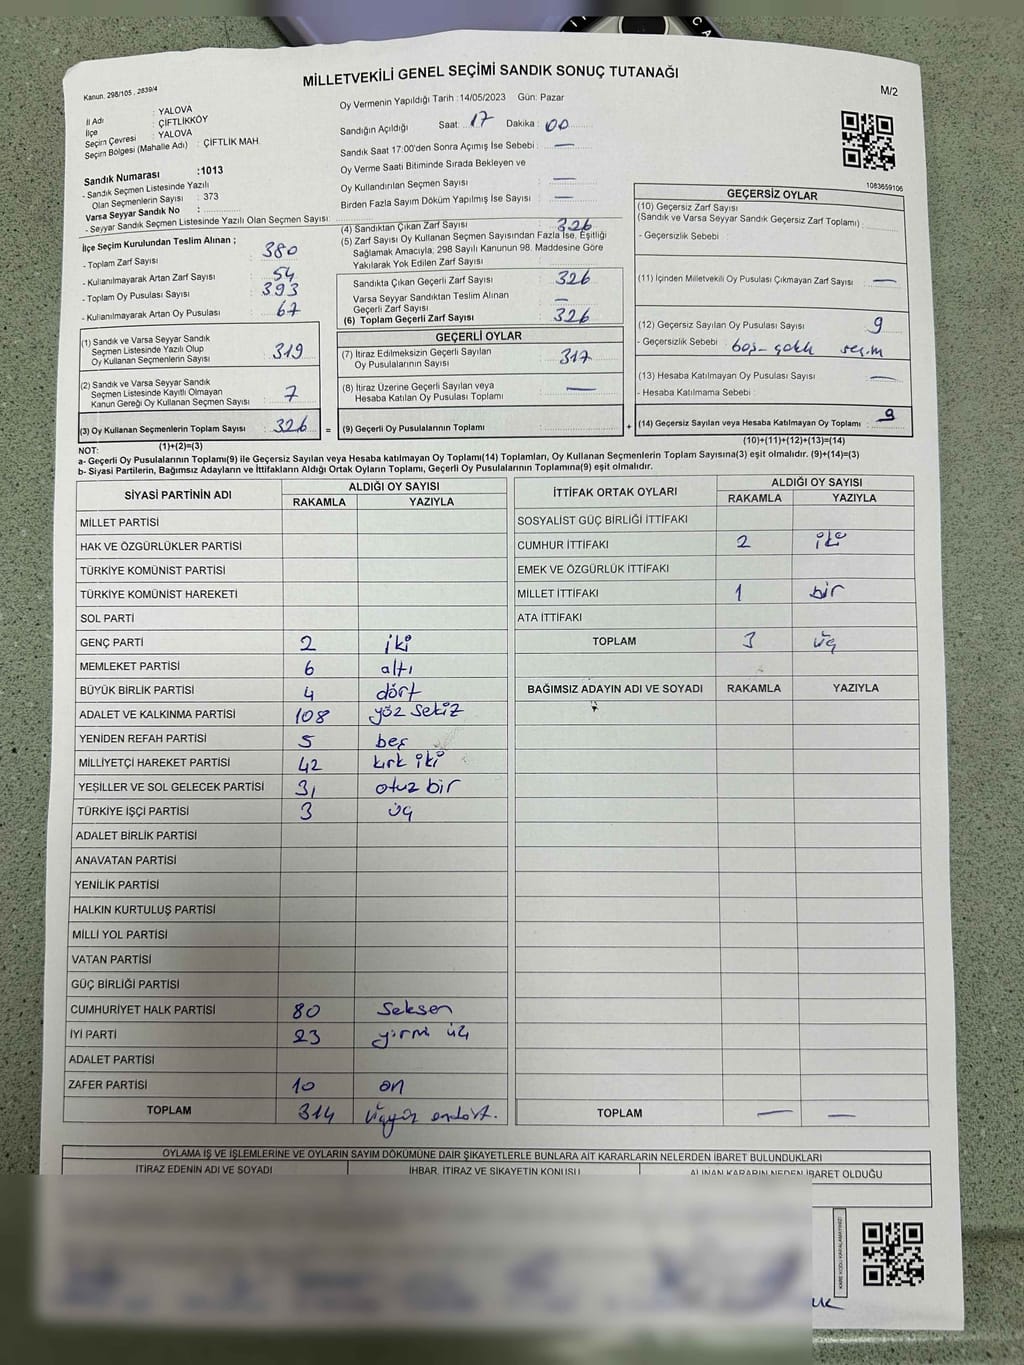 MİLLETVEKİLİ GENEL SEÇİMİ SANDIK SONUÇ TUTANAĞI
Kanun. 298/105 , 2839/4
M/2
İl Adı : YALOVA
İlçe : ÇİFTLİKKÖY
Seçim Çevresi : YALOVA
Seçim Bölgesi (Mahalle Adı) : ÇİFTLİK MAH.
Sandık Numarası :1013
- Sandık Seçmen Listesinde Yazılı
Olan Seçmenlerin Sayısı : 373
Varsa Seyyar Sandık No :
- Seyyar Sandık Seçmen Listesinde Yazılı Olan Seçmen Sayısı:
Oy Vermenin Yapıldığı Tarih :14/05/2023 Gün: Pazar
Sandığın Açıldığı Saat: 17 Dakika : 00
Sandık Saat 17:00'den Sonra Açımış İse Sebebi : —
Oy Verme Saati Bitiminde Sırada Bekleyen ve
Oy Kullandırılan Seçmen Sayısı : —
Birden Fazla Sayım Döküm Yapılmış İse Sayısı : —
1083659106
İlçe Seçim Kurulundan Teslim Alınan ;
- Toplam Zarf Sayısı : 380
- Kullanılmayarak Artan Zarf Sayısı : 54
- Toplam Oy Pusulası Sayısı : 393
- Kullanılmayarak Artan Oy Pusulası : 67
(1) Sandık ve Varsa Seyyar Sandık
Seçmen Listesinde Yazılı Olup
Oy Kullanan Seçmenlerin Sayısı : 319
(2) Sandık ve Varsa Seyyar Sandık
Seçmen Listesinde Kayıtlı Olmayan
Kanun Gereği Oy Kullanan Seçmen Sayısı : 7
(3) Oy Kullanan Seçmenlerin Toplam Sayısı : 326
(1)+(2)=(3)
(4) Sandıktan Çıkan Zarf Sayısı : 326
(5) Zarf Sayısı Oy Kullanan Seçmen Sayısından Fazla İse, Eşitliği
Sağlamak Amacıyla, 298 Sayılı Kanunun 98. Maddesine Göre
Yakılarak Yok Edilen Zarf Sayısı :
Sandıkta Çıkan Geçerli Zarf Sayısı : 326
Varsa Seyyar Sandıktan Teslim Alınan
Geçerli Zarf Sayısı : —
(6) Toplam Geçerli Zarf Sayısı : 326
GEÇERLİ OYLAR
(7) İtiraz Edilmeksizin Geçerli Sayılan
Oy Pusulalarının Sayısı : 317
(8) İtiraz Üzerine Geçerli Sayılan veya
Hesaba Katılan Oy Pusulası Toplamı : —
= (9) Geçerli Oy Pusulalarının Toplamı :
GEÇERSİZ OYLAR
(10) Geçersiz Zarf Sayısı
(Sandık ve Varsa Seyyar Sandık Geçersiz Zarf Toplamı) :
- Geçersizlik Sebebi :
(11) İçinden Milletvekili Oy Pusulası Çıkmayan Zarf Sayısı : —
(12) Geçersiz Sayılan Oy Pusulası Sayısı : 9
- Geçersizlik Sebebi : boş-
(13) Hesaba Katılmayan Oy Pusulası Sayısı : —
- Hesaba Katılmama Sebebi :
+ (14) Geçersiz Sayılan veya Hesaba Katılmayan Oy Toplamı : 9
(10)+(11)+(12)+(13)=(14)
NOT:
a- Geçerli Oy Pusulalarının Toplamı(9) ile Geçersiz Sayılan veya Hesaba katılmayan Oy Toplamı(14) Toplamları, Oy Kullanan Seçmenlerin Toplam Sayısına(3) eşit olmalıdır. (9)+(14)=(3)
b- Siyasi Partilerin, Bağımsız Adayların ve İttifakların Aldığı Ortak Oyların Toplamı, Geçerli Oy Pusulalarının Toplamına(9) eşit olmalıdır.
SİYASİ PARTİNİN ADI ALDIĞI OY SAYISI
RAKAMLA YAZIYLA
MİLLET PARTİSİ
HAK VE ÖZGÜRLÜKLER PARTİSİ
TÜRKİYE KOMÜNİST PARTİSİ
TÜRKİYE KOMÜNİST HAREKETİ
SOL PARTİ
GENÇ PARTİ 2 iki
MEMLEKET PARTİSİ 6 altı
BÜYÜK BİRLİK PARTİSİ 4 dört
ADALET VE KALKINMA PARTİSİ 108 yöz sekiz
YENİDEN REFAH PARTİSİ 5 beş
MİLLİYETÇİ HAREKET PARTİSİ 42 kırk iki
YEŞİLLER VE SOL GELECEK PARTİSİ 31 otuz bir
TÜRKİYE İŞÇİ PARTİSİ 3 üç
ADALET BİRLİK PARTİSİ
ANAVATAN PARTİSİ
YENİLİK PARTİSİ
HALKIN KURTULUŞ PARTİSİ
MİLLİ YOL PARTİSİ
VATAN PARTİSİ
GÜÇ BİRLİĞİ PARTİSİ
CUMHURİYET HALK PARTİSİ 80 seksen
İYİ PARTİ 23 yirmi üç
ADALET PARTİSİ
ZAFER PARTİSİ 10 on
TOPLAM 314 üçyüz ondört.
İTTİFAK ORTAK OYLARI ALDIĞI OY SAYISI
RAKAMLA YAZIYLA
SOSYALİST GÜÇ BİRLİĞİ İTTİFAKI
CUMHUR İTTİFAKI 2 iki
EMEK VE ÖZGÜRLÜK İTTİFAKI
MİLLET İTTİFAKI 1 bir
ATA İTTİFAKI
TOPLAM 3 üç
BAĞIMSIZ ADAYIN ADI VE SOYADI RAKAMLA YAZIYLA
TOPLAM — —
OYLAMA İŞ VE İŞLEMLERİNE VE OYLARIN SAYIM DÖKÜMÜNE DAİR ŞİKAYETLERLE BUNLARA AİT KARARLARIN NELERDEN İBARET BULUNDUKLARI
İTİRAZ EDENİN ADI VE SOYADI İHBAR, İTİRAZ VE ŞİKAYETİN KONUSU ALINAN KARARIN NEDEN İBARET OLDUĞU